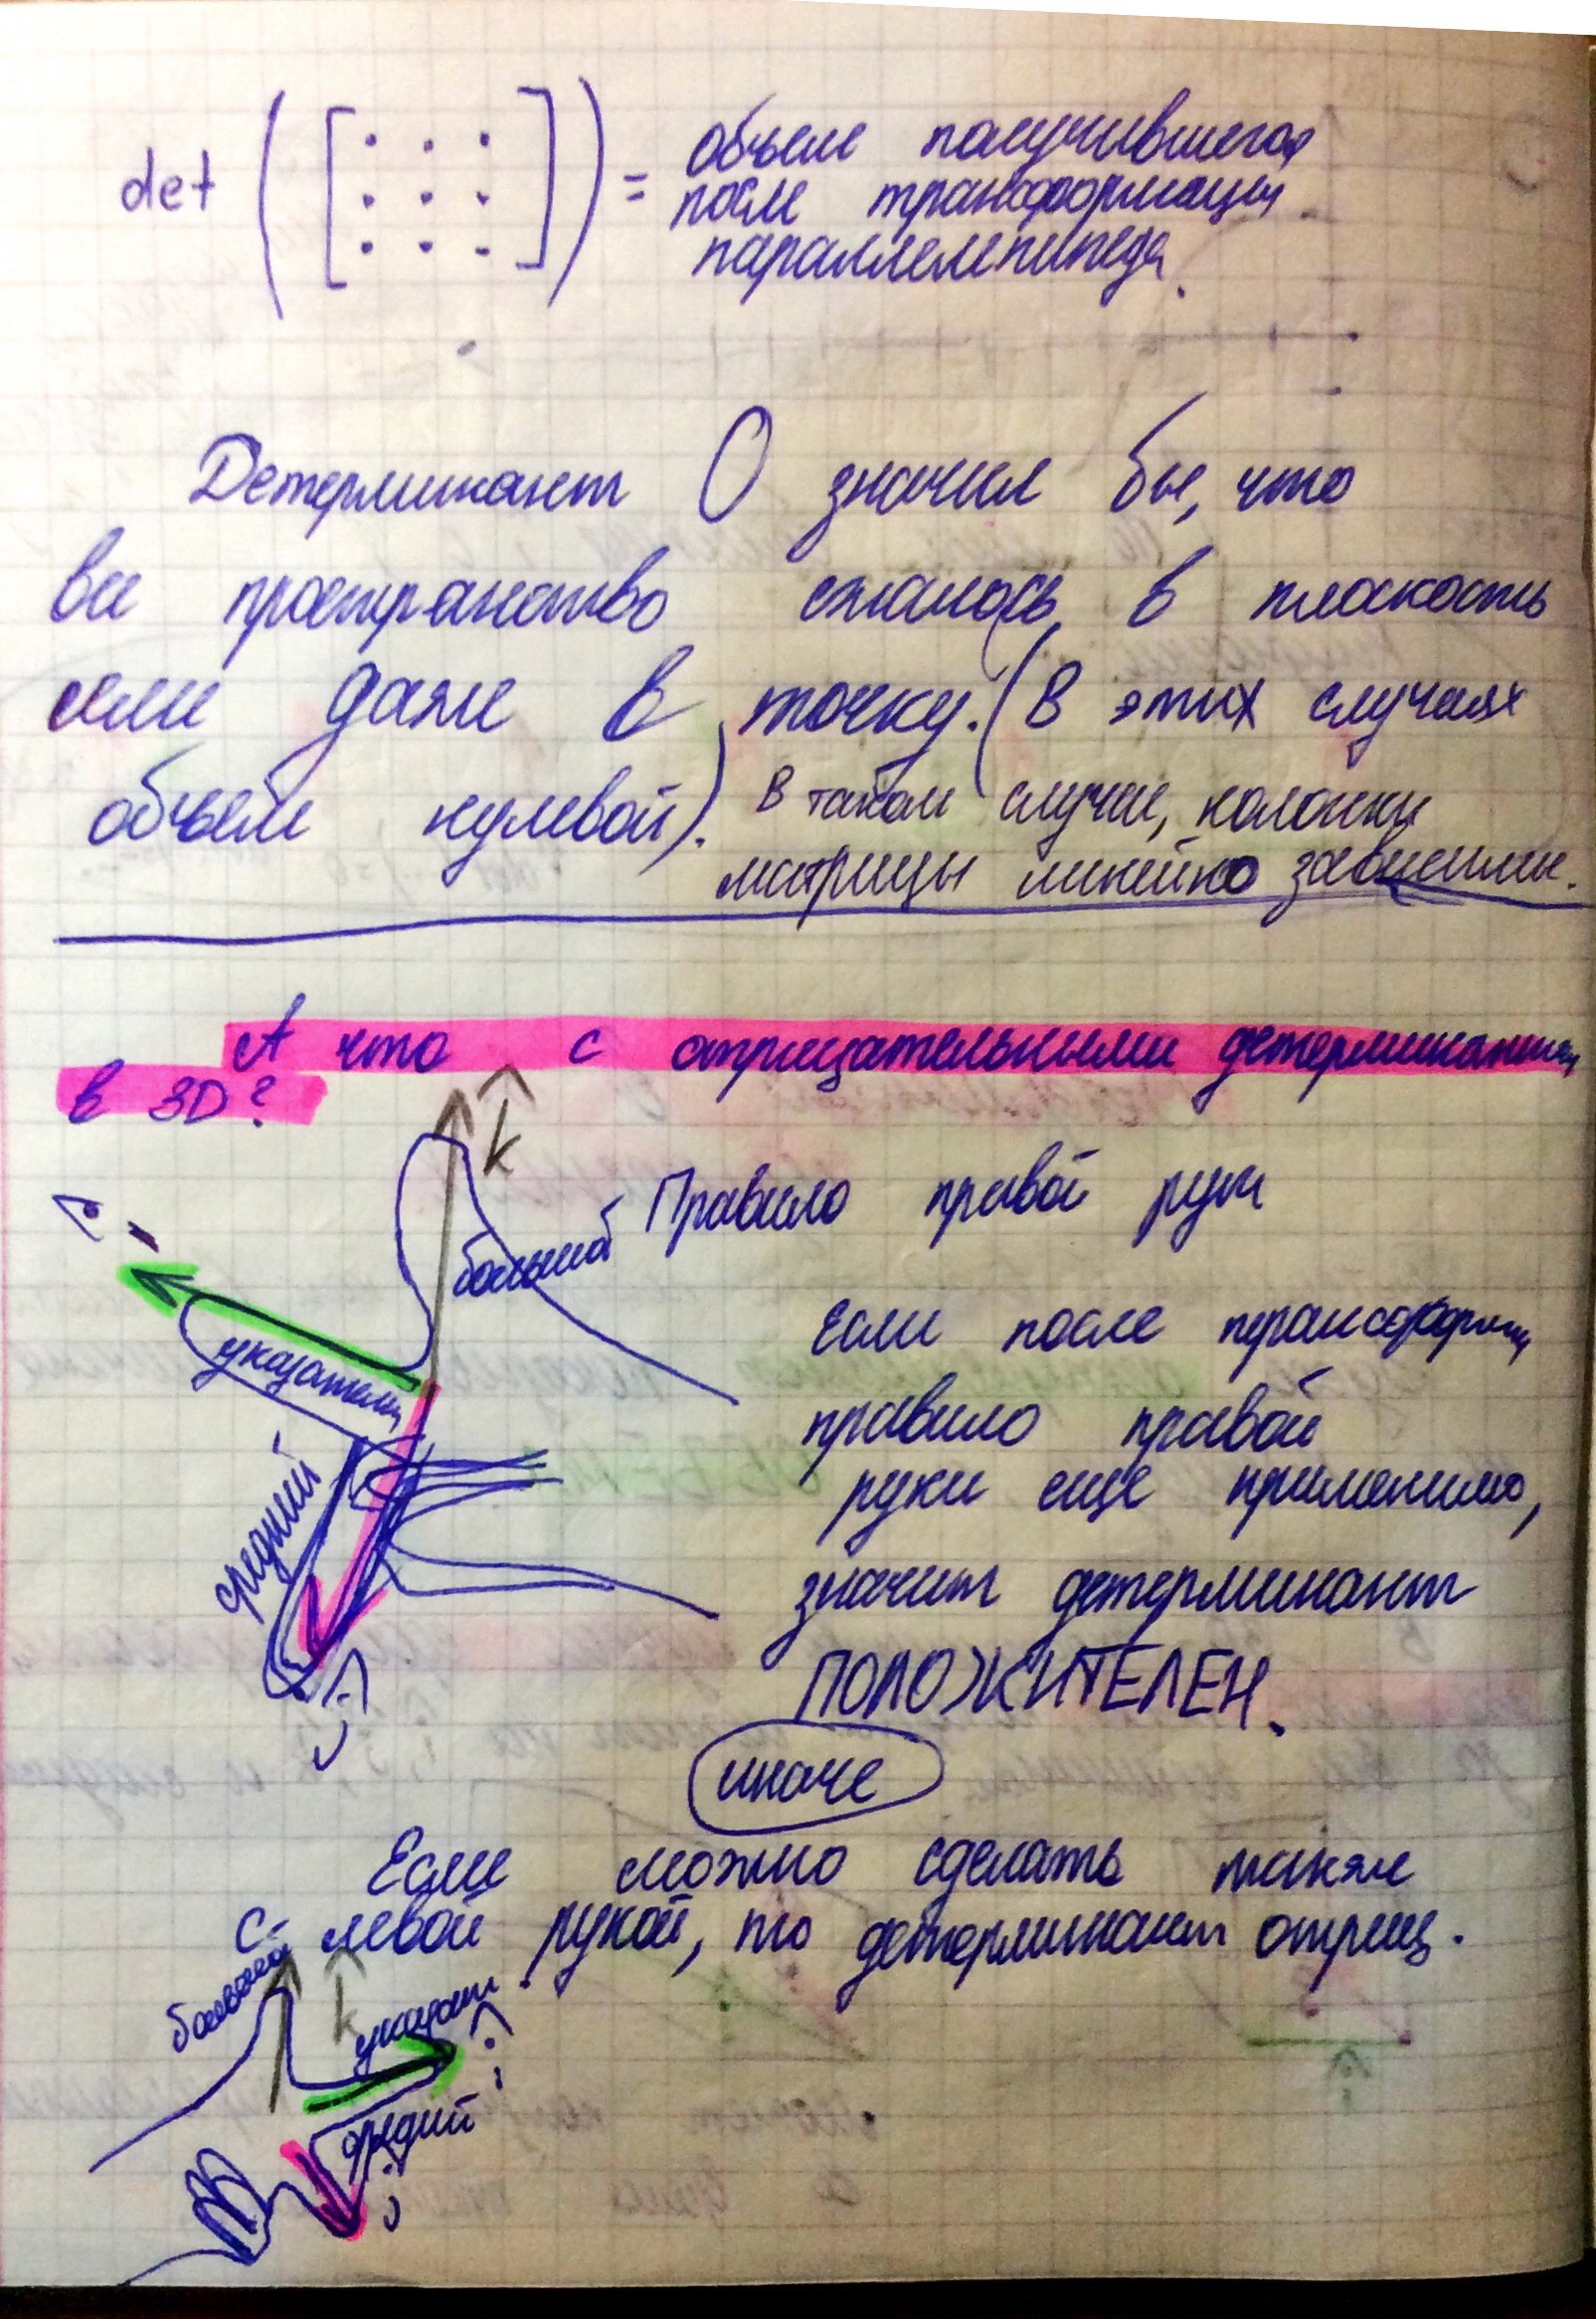 det ([⋅ ⋅ ⋅
⋅ ⋅ ⋅
⋅ ⋅ ⋅]) =
объем получившегося
после трансформации
параллелепипеда.
Детерминант 0 значил бы, что
все пространство сжалось в плоскость
или даже в точку. (В этих случаях
объем нулевой).
В таком случае, колонки
матрицы линейно зависимы.
А что с отрицательными детерминантами
в 3D?
k̂
Правило правой руки
большой
i
указательн
средний
ĵ
Если после
правило правой
руки еще применимо,
значит детерминант
ПОЛОЖИТЕЛЕН.
иначе
Если можно сделать также
с левой рукой, то детерминант отриц.
большой
k̂
указат.
î
средний
ĵ